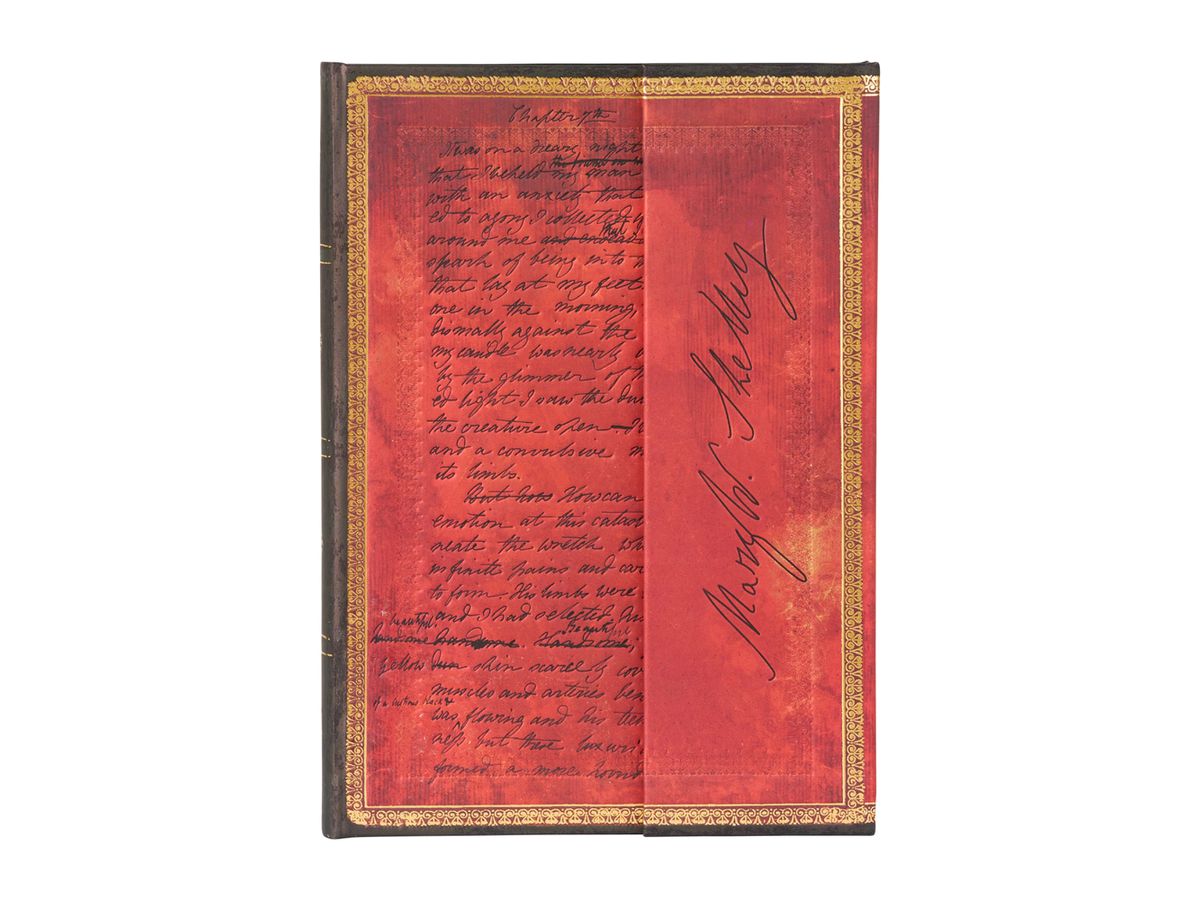 Chapter 7th
It was on a dreary night
that I beheld my man
with an anxiety that
ed to agony I collected
around me and endeav that
spark of being into
that lay at my feet.
one in the morning,
dismally against the
my candle was nearly
by the glimmer of
ed light I saw the du
the creature open
and a convulsive m
its limbs.
But how How can
emotion at this catas
neate the wretch wh
infinite pains and car
to form. His limbs were
and I had selected
beautiful.
handsome handsome. Handsome; Beautiful
yellow dun skin scarcely cov
muscles and arteries ben
of a lustrous black &
was flowing and his tee
ness but these luxuri
formed a more horrid
Mary W. Shelley